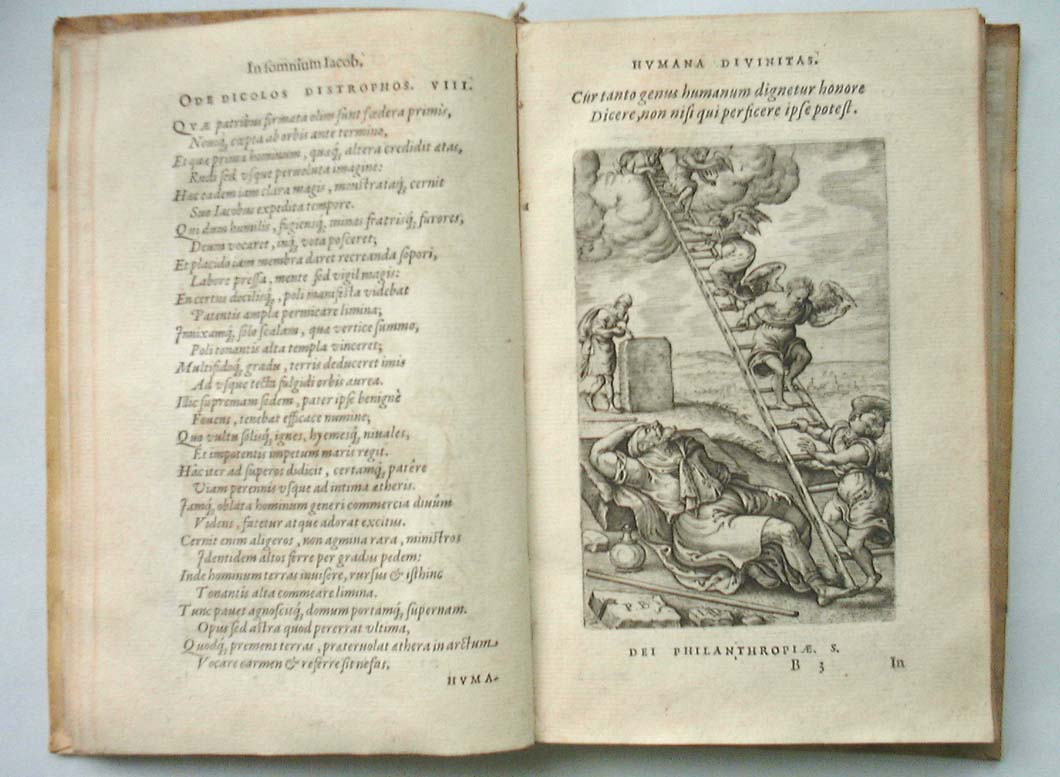 In somnium Iacob.
ODE DICOLOS DISTROPHOS. VIII.
QVÆ patribus firmata olim sunt fœdera primis,
Nonq́, cœpta ab orbis ante termino,
Et quæ prima hominum, quaq́, altera credidit ætas,
Rudi sed vsque peruoluta imagine:
Hæc eadem iam clara magis, monstrataq́, cernit
Suo Iacobus expedita tempore.
Qui dum humilis, fugiensq́, minas fratrisq́, furores,
Deum vocaret, inq́, vota posceret;
Et placido iam membra daret recreanda sopori,
Labore pressa, mente sed vigil magis:
En certus docilisq́, poli manifesta videbat
Patentis ampla permicare limina;
Innixamq́, solo scalam, qua vertice summo,
Poli tonantis alta templa vinceret;
Multifidoq́, gradu, terris deduceret imis
Ad vsque tecta fulgidi orbis aurea.
Illic supremam sedem, pater ipse benignè
Fouens, tenebat efficace numine;
Quo vultu solisq́, ignes, hyemesq́, niuales,
Et impotentis impetum maris regit.
Hâc iter ad superos didicit, certamq́, patêre
Viam perennis vsque ad intima ætheris.
Jamq́, oblata hominum generi commercia diuûm
Videns, fatetur atque adorat excitus.
Cernit enim aligeros, non agmina rara, ministros
Identidem altos ferre per gradus pedem:
Inde hominum terras inuisere, rursus & isthinc
Tonantis alta commeare limina.
Tunc pauet agnoscitq́, domum portamq́, supernam.
Opus sed astra quod pererrat vltima,
Quodq́, premens terras, præteruolat æthera in arctum
Vocare carmen & referre sit nefas.
HVMA-
HVMANA DIVINITAS.
Cur tanto genus humanum dignetur honore
Dicere, non nisi qui perficere ipse potest.
P. B.
DEI PHILANTHROPIÆ. S.
B 3
In